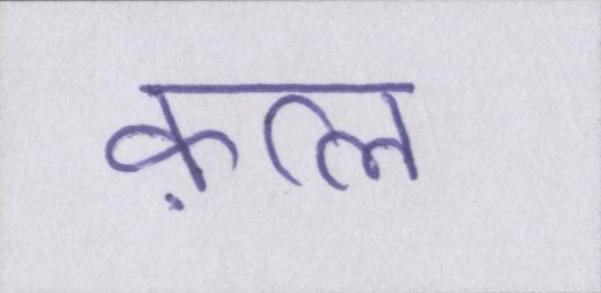 क़त्ल